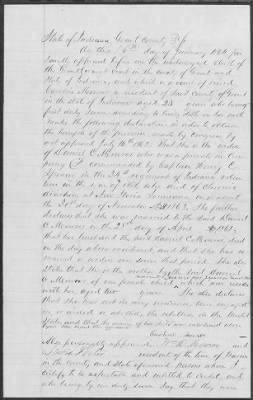 State of Indiana Grant County SS
On this 6th day of January 186 per
sonally appeared before me the undersigned Clerk of
the Circuit court in the county of Grant and
State of Indiana, and which is a court of record
Moreno a resident of said county of Grant
in the state of Indiana aged 23 years who being
first duly sworn according to law, doth on her oath
make the following declaration in order to obtain
the benefits of the provision made by congress by
act approved July 14th 1862. That she is the widow
of Daniel C who was a private in Com
pany commanded by Captain Henry C
in the 34th regiment of Indiana volun
teers in the war of 1861, who died of Chronic
diarrhea at New Iberia Louisiana, on or about
the 20th day of November AD 1863. She further
declares that she was married to the said Daniel
C on the 28th day of April AD 1861,
that her husband the said Daniel C died
on the day above mentioned and that she has re
mained a widow ever since that period. She also
states that she is the mother by the said Daniel
C of one female child which now resides
with her, aged two years. She also declares
that she has not in any manner, been engaged
in, or aided or abetted, the rebellion in the United
States, and that
Also personally appeared and
resident of the town of Marion
in the county and state aforesaid persons whom I
certify to be respectable and entitled to credit, and
who being by me duly sworn say that they were